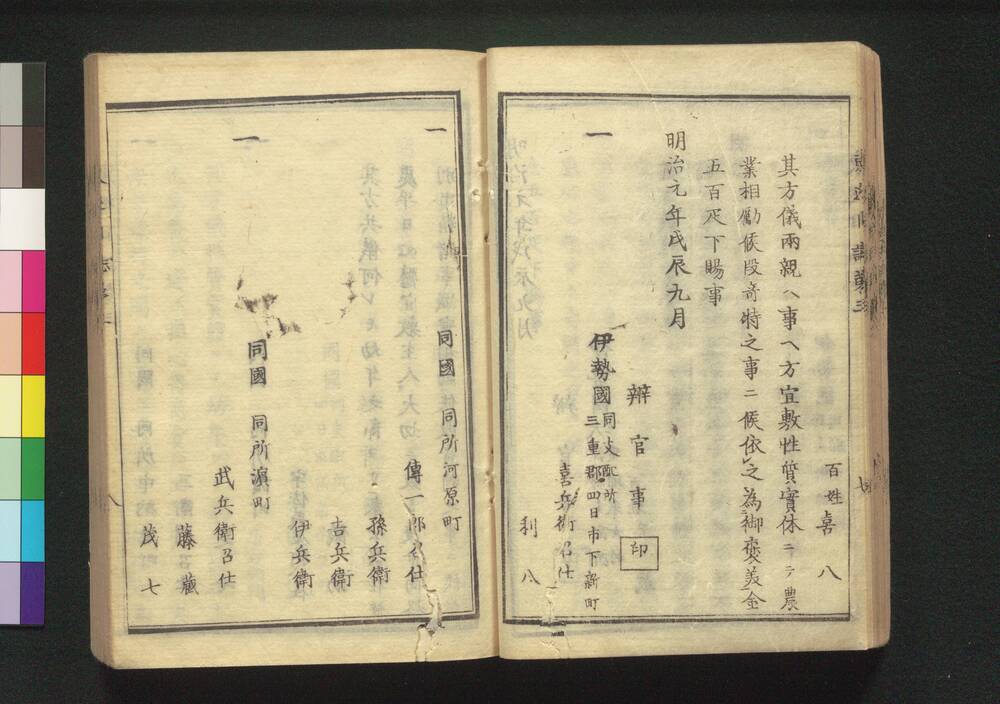 百姓喜八
其方儀兩親ヘ事ヘ方宜敷性質實体ニテ農
業相勵候段奇特之事ニ候依之為御褒美金
五百疋下賜事
明治元年戊辰九月
辨官事 印
一 伊勢國同支配所三重郡四日市下新町
喜兵衛召仕
利八
一 同國 同所河原町
傳一郎召仕
孫兵衛
吉兵衛
伊兵衛
一 同國 同所濵町
武兵衛召仕
藤藏
茂七